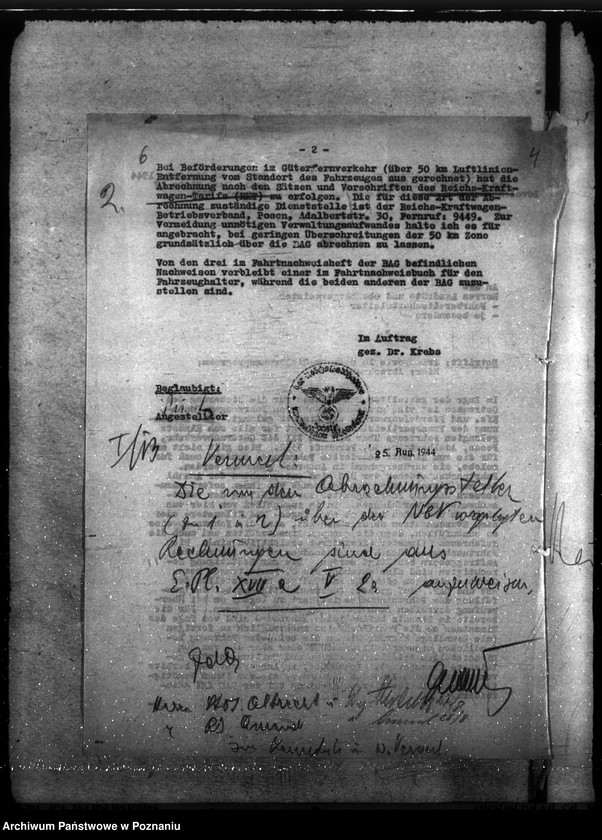 - 2 -
6
4
2.
Bei Beförderungen im Güterfernverkehr (über 50 km Luftlinien-
Entfernung vom Standort des Fahrzeugen aus gerechnet) hat die
Abrechnung nach den Sätzen und Vorschriften des Reichs-Kraft-
wagen-Tarifs (RKT) zu erfolgen. Die für diese Art der Ab-
rechnung zuständige Dienststelle ist der Reichs-Kraftwagen-
Betriebsverband, Posen, Adalbertstr. 30, Fernruf: 9449. Zur
Vermeidung unnötigen Verwaltungsaufwandes halte ich es für
angebracht, bei geringen Überschreitungen der 50 km Zone
grundsätzlich über die BAG abrechnen zu lassen.
Von den drei im Fahrtnachweisheft der BAG befindlichen
Nachweisen verbleibt einer im Fahrtnachweisbuch für den
Fahrzeughalter, während die beiden anderen der BAG zuzu-
stellen sind.
Im Auftrag
gez. Dr. Krebs
Beglaubigt:
Angestellter
25. Aug. 1944
I/13 Vermerk:
Die von den Abrechnungsstellen
über den vorgelegten
Rechnungen sind aus
E.Pl. XVII a V 2a anzuweisen.
Herrn Albrecht u
Archiwum Państwowe w Poznaniu